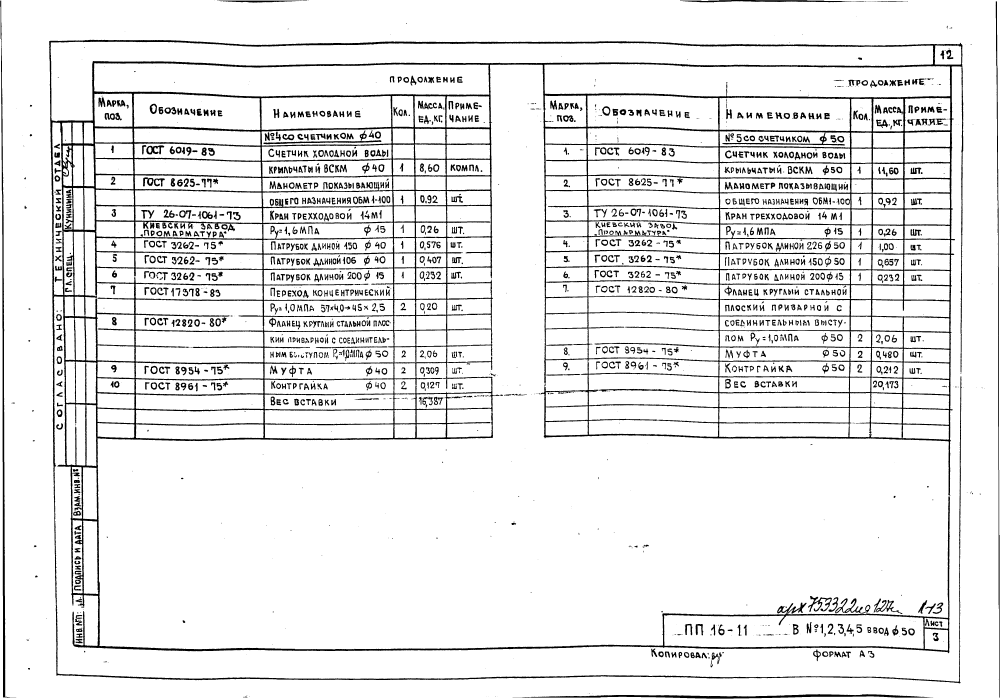 12
ПРОДОЛЖЕНИЕ
МАРКА, ПОЗ. ОБОЗНАЧЕНИЕ НАИМЕНОВАНИЕ КОЛ. МАССА ЕД., КГ. ПРИМЕЧАНИЕ
№4 СО СЧЕТЧИКОМ ϕ 40
1 ГОСТ 6019-83 СЧЕТЧИК ХОЛОДНОЙ ВОДЫ
КРЫЛЬЧАТЫЙ ВСКМ ϕ 40 1 8,60 КОМПЛ.
2 ГОСТ 8625-77* МАНОМЕТР ПОКАЗЫВАЮЩИЙ
ОБЩЕГО НАЗНАЧЕНИЯ ОБМ 1-100 1 0,92 ШТ.
3 ТУ 26-07-1061-73 КРАН ТРЕХХОДОВОЙ 14М1
КИЕВСКИЙ ЗАВОД „ПРОМАРМАТУРА" Ру=1,6 МПА ϕ 15 1 0,26 ШТ.
4 ГОСТ 3262-75* ПАТРУБОК ДЛИНОЙ 150 ϕ 40 1 0,576 ШТ.
5 ГОСТ 3262-75* ПАТРУБОК ДЛИНОЙ 106 ϕ 40 1 0,407 ШТ.
6 ГОСТ 3262-75* ПАТРУБОК ДЛИНОЙ 200 ϕ 15 1 0,232 ШТ.
7 ГОСТ 17378-83 ПЕРЕХОД КОНЦЕНТРИЧЕСКИЙ
Ру=1,0МПА 57×4,0-45×2,5 2 0,20 ШТ.
8 ГОСТ 12820-80* ФЛАНЕЦ КРУГЛЫЙ СТАЛЬНОЙ ПЛОС-
КИЙ ПРИВАРНОЙ С СОЕДИНИТЕЛЬ-
НЫМ ВЫСТУПОМ Ру=1,0МПА ϕ 50 2 2,06 ШТ.
9 ГОСТ 8954-75* МУФТА ϕ 40 2 0,309 ШТ.
10 ГОСТ 8961-75* КОНТРГАЙКА ϕ 40 2 0,127 ШТ.
ВЕС ВСТАВКИ 16,387
ПРОДОЛЖЕНИЕ
МАРКА, ПОЗ. ОБОЗНАЧЕНИЕ НАИМЕНОВАНИЕ КОЛ. МАССА ЕД., КГ. ПРИМЕ-ЧАНИЕ
№5 СО СЧЕТЧИКОМ ϕ 50
1. ГОСТ 6019-83 СЧЕТЧИК ХОЛОДНОЙ ВОДЫ
КРЫЛЬЧАТЫЙ ВСКМ ϕ 50 1 11,60 ШТ.
2. ГОСТ 8625-77* МАНОМЕТР ПОКАЗЫВАЮЩИЙ
ОБЩЕГО НАЗНАЧЕНИЯ ОБМ1-100 1 0,92 ШТ.
3. ТУ 26-07-1061-73 КРАН ТРЕХХОДОВОЙ 14М1
КИЕВСКИЙ ЗАВОД „ПРОМАРМАТУРА" Ру=1,6 МПА ϕ 15 1 0,26 ШТ.
4. ГОСТ 3262-75* ПАТРУБОК ДЛИНОЙ 226 ϕ 50 1 1,00 ШТ.
5. ГОСТ 3262-75* ПАТРУБОК ДЛИНОЙ 150 ϕ 50 1 0,657 ШТ.
6. ГОСТ 3262-75* ПАТРУБОК ДЛИНОЙ 200 ϕ 15 1 0,232 ШТ.
7. ГОСТ 12820-80* ФЛАНЕЦ КРУГЛЫЙ СТАЛЬНОЙ
ПЛОСКИЙ ПРИВАРНОЙ С
СОЕДИНИТЕЛЬНЫМ ВЫСТУ-
ПОМ Ру=1,0МПА ϕ 50 2 2,06 ШТ.
8. ГОСТ 8954-75* МУФТА ϕ 50 2 0,480 ШТ.
9. ГОСТ 8961-75* КОНТРГАЙКА ϕ 50 2 0,212 ШТ.
ВЕС ВСТАВКИ 20,173
СОГЛАСОВАНО:
ТЕХНИЧЕСКИЙ ОТДЕЛ
ГЛ. СПЕЦ. КУНИЦИНА
ВЗАМ. ИНВ. №
ПОДПИСЬ И ДАТА
ИНВ. №П
ПП 16-11 В №1,2,3,4,5 ВВОД ϕ 50
ЛИСТ
3
КОПИРОВАЛ:
ФОРМАТ А3